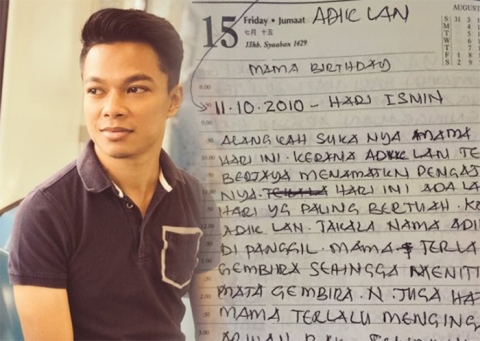 15 Friday • Jumaat ADIK LAN
七月 十五
13hb. Syaaban 1429
AUGUS
S 31 3
M
T
W
T
F 1 8
S 2 9
MAMA BIRTHDAY
11.10.2010 - HARI ISNIN
ALANGKAH SUKA NYA MAMA
HARI INI. KERANA ADIK LAN TE
BERJAYA MENAMATKN PENGAJ
NYA. HARI INI ADA LA
HARI YG PALING BERTUAH. K
ADIK LAN. TAKALA NAMA ADI
DI PANGGIL. MAMA TERLA
GEMBIRA SEHINGGA MENITI
MATA GEMBIRA. N JUGA HA
MAMA TERLALU MENGING